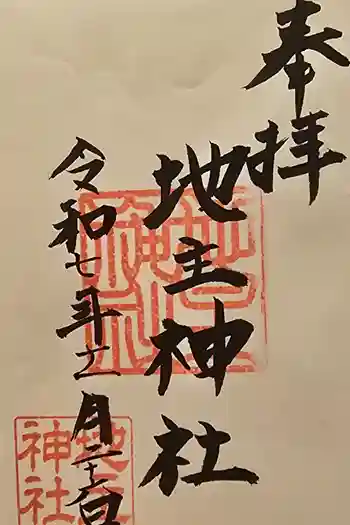 奉拝
地主神社
令和七年十一月二十日
地主神社
地主神社